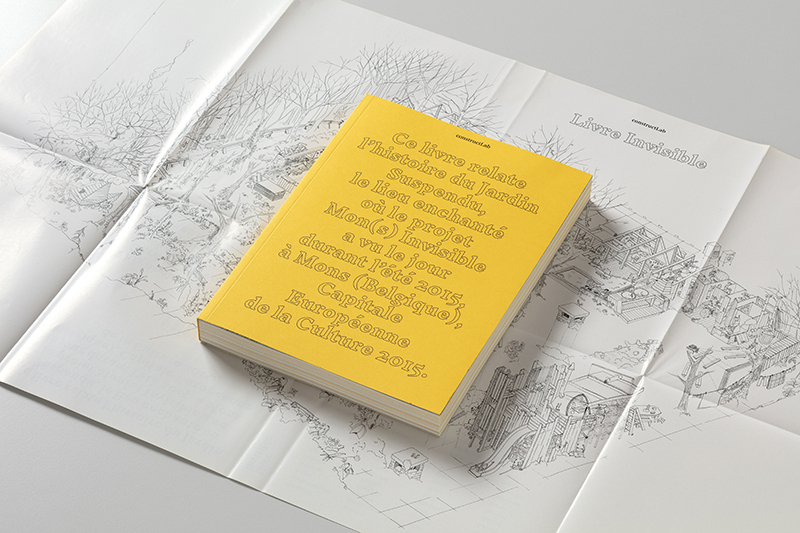 constructLab
Ce livre relate
l'histoire du Jardin
Suspendu,
le lieu enchanté
où le projet
Mon(s) Invisible
a vu le jour
durant l'été 2015,
à Mons (Belgique),
Capitale
Européenne
de la Culture 2015.
constructLab
Livre Invisible